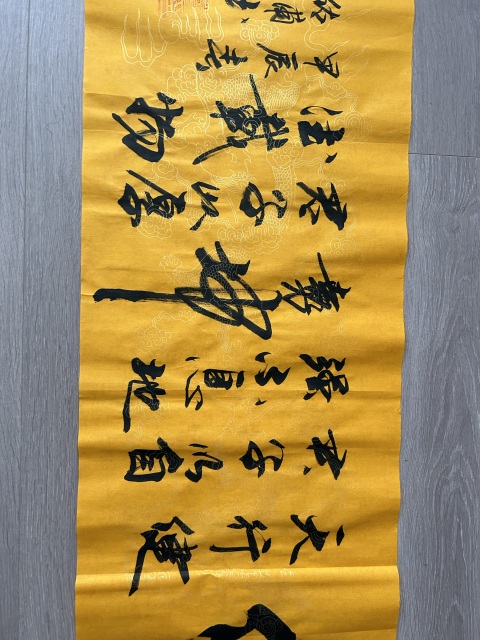 天行健
君子以自
強不息地
勢坤
君子以厚
德載物
甲辰